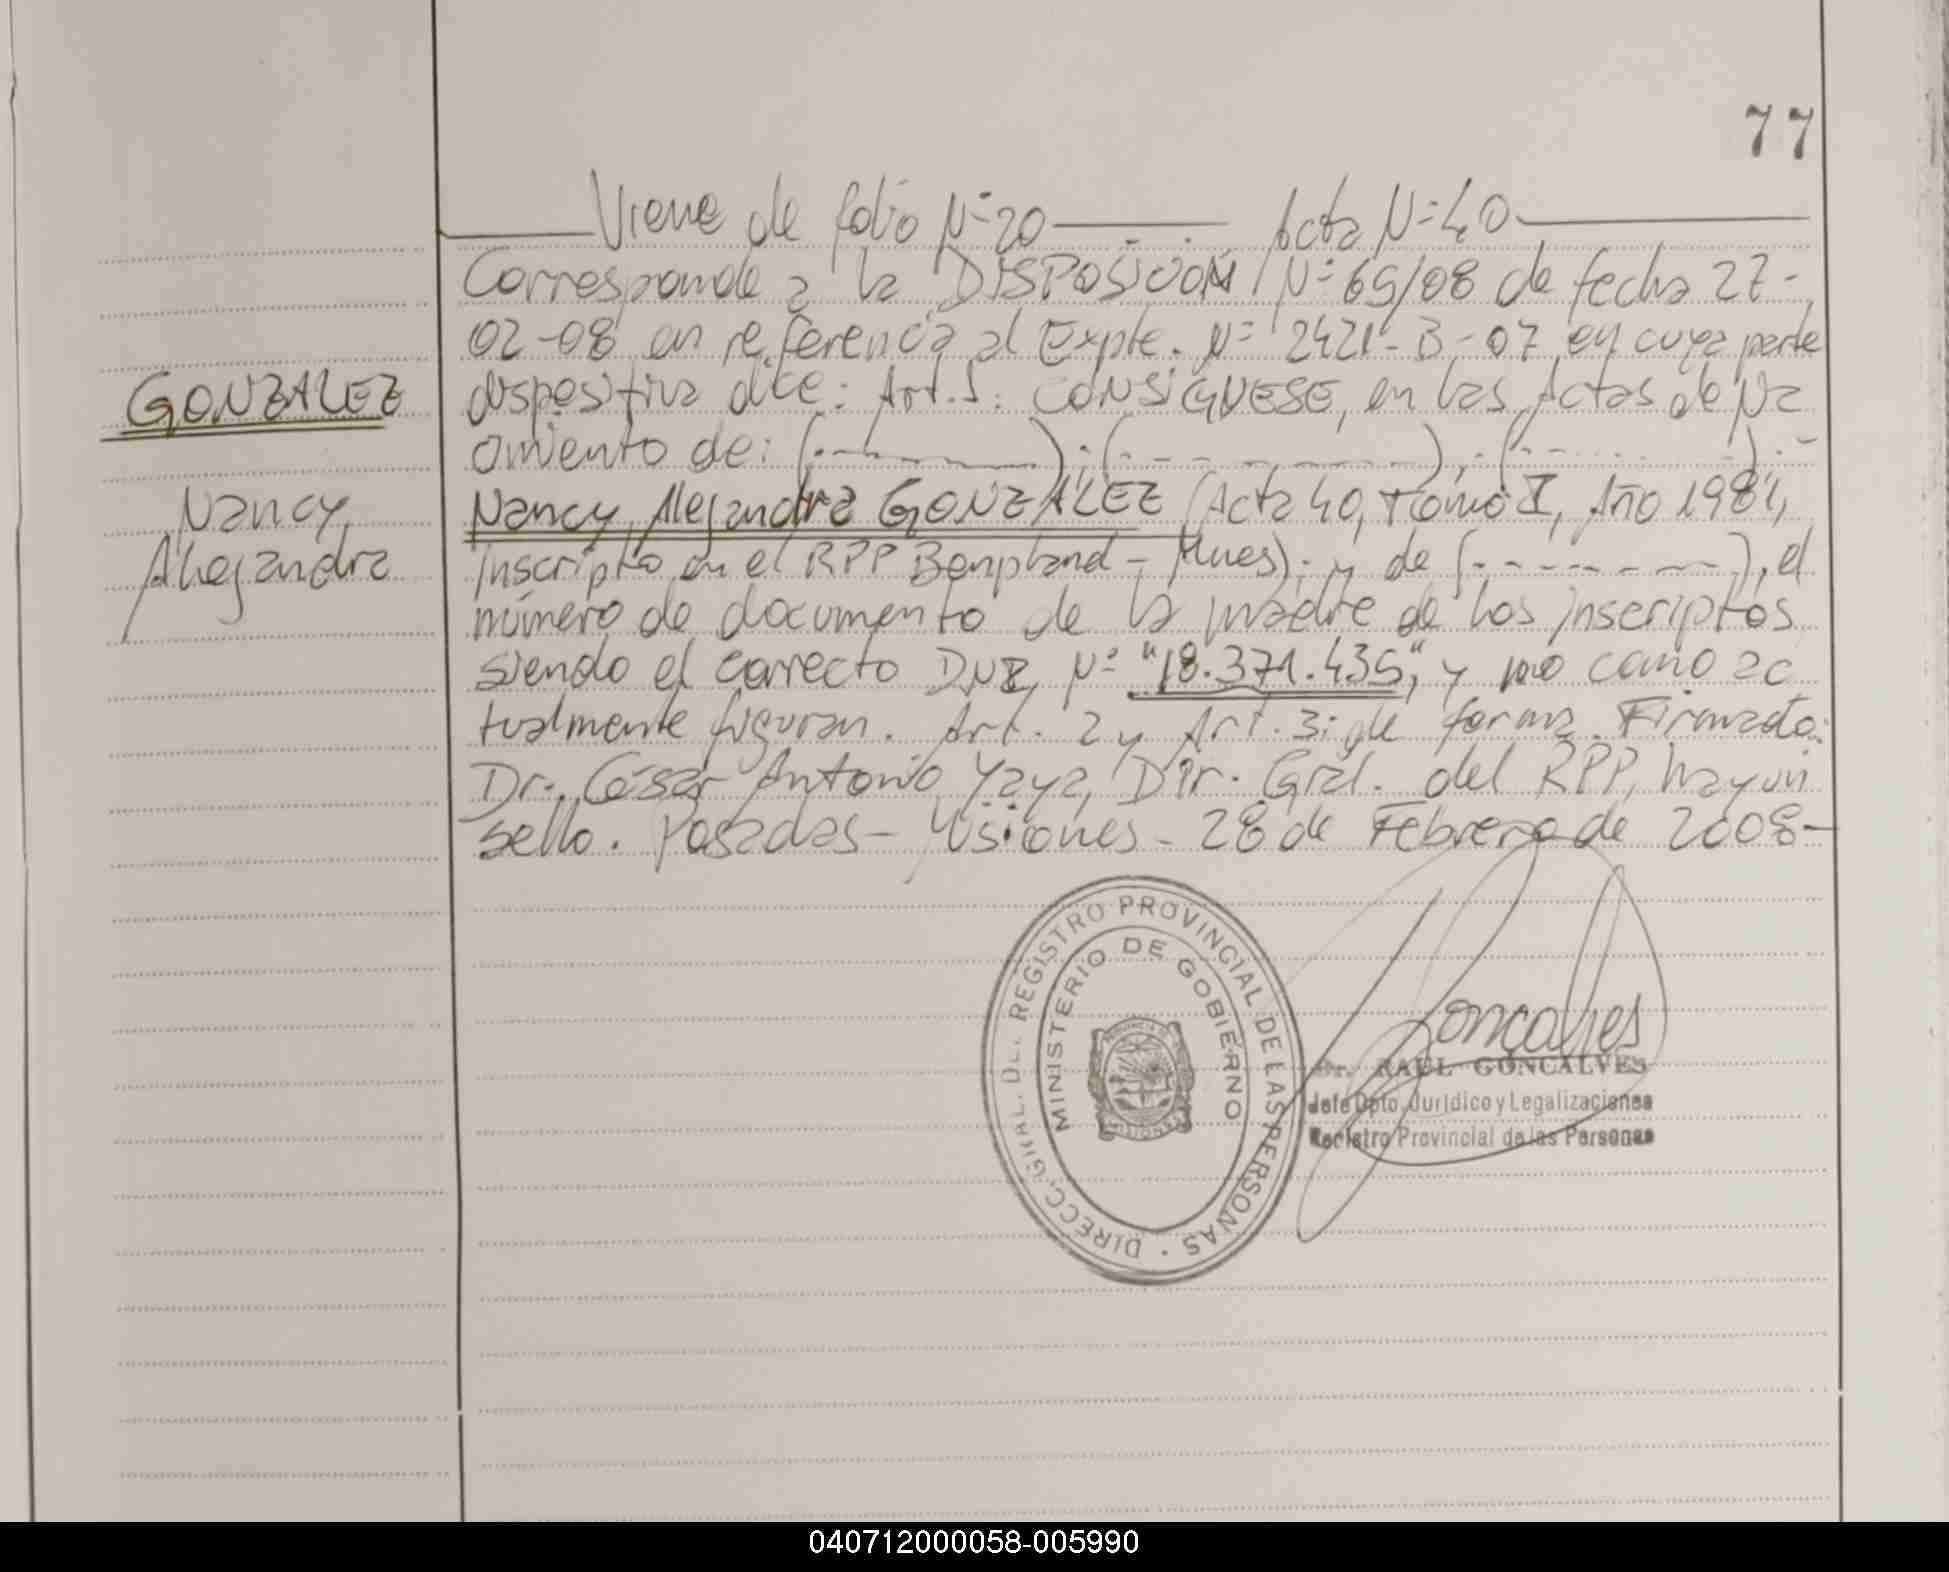 77
Viene de folio Nº 20 Acta Nº 40
Corresponde a la DISPOSICION Nº 69/08 de fecha 27-
02-08 en referencia al Expte. Nº 2421-B-07, en cuya parte
GONZALEZ
dispositiva dice: Art. 1: CONSIGNESE, en las Actas de Na
cimiento de: (- - - - -); (- - - - -); (- - - - -); -
Nancy Alejandra
Nancy Alejandra GONZALEZ (Acta 40, Tomo I, Año
inscripto en el RPP Bonpland - Mnes); y de (- - - - -), el
número de documento de la madre de los inscriptos
siendo el correcto DNI, Nº "18.371.435", y no como ac
tualmente figuran. Art. 2 y Art. 3: de forma. Firmado:
Dr. César Antonio Yaya, Dir. Gral. del RPP, hay un
sello. Posadas - Misiones - 28 de Febrero de 2008 -
DIRECC. GRAL. DEL REGISTRO PROVINCIAL DE LAS PERSONAS
MINISTERIO DE GOBIERNO
PROVINCIA DE
MISIONES
Goncalves
Dr. RAUL GONCALVES
Jefe Dpto. Jurídico y Legalizaciones
Registro Provincial de las Personas
040712000058-005990